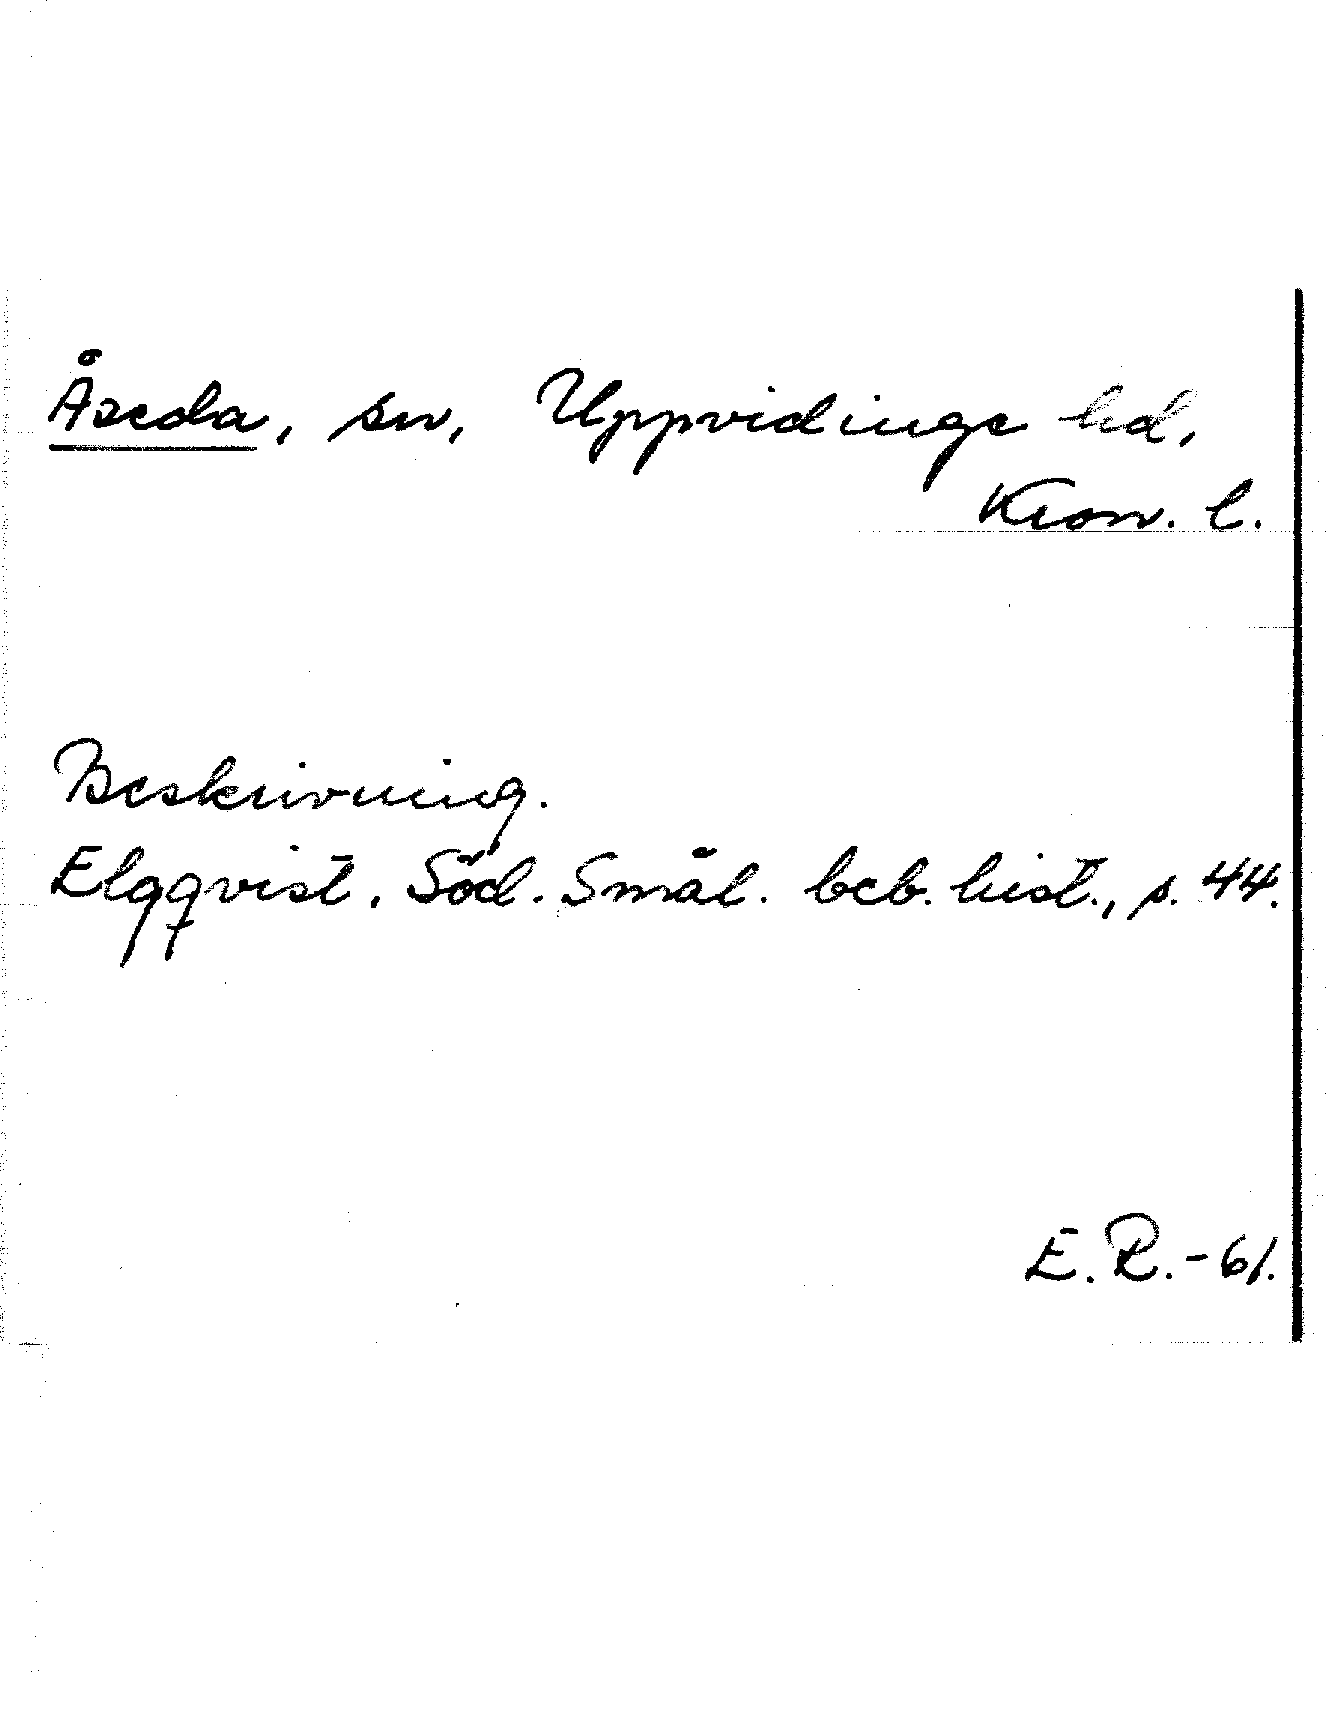 Åseda, sn, Uppvidinge hd,
Kron. l.
Beskrivning.
Elgqvist, Söd. Smål. beb. hist., s. 44.
E. R. - 61.